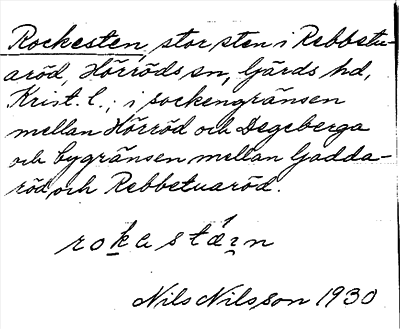 Rockesten, stor sten i Rebbetu-
aröd, Hörröds sn, Gärds hd,
Krist. l.; i sockengränsen
mellan Hörröd och Degeberga
och bygränsen mellan Gadda-
röd och Rebbetuaröd.
rokastǽn
Nils Nilsson 1930